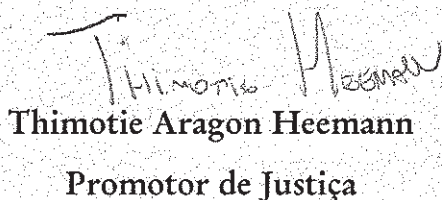 Thimotie Heemann
Thimotie Aragon Heemann
Promotor de Justiça